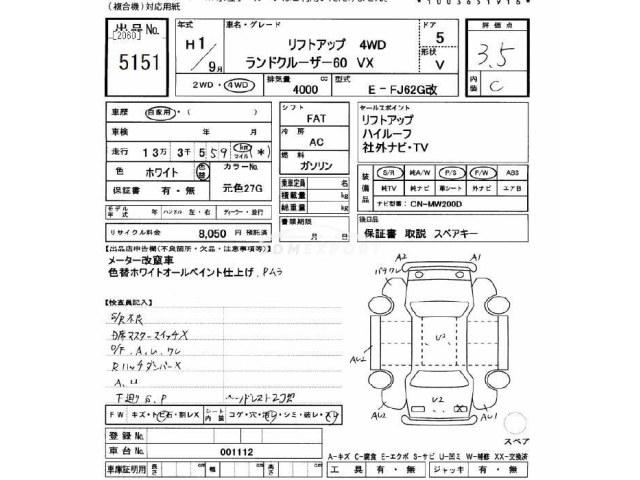 (複合機)対応用紙
*1003651916*
出品No. [2060] 5151
年式 H1/9月
車名・グレード リフトアップ 4WD
ランドクルーザー60 VX
ドア 5
形状 V
評価点 3.5
内装 C
2WD・4WD 排気量 4000 cc 型式 E-FJ62G改
車歴 自家用・
車検 年 月
走行 13万 3千 559 km マイル (*)
色 ホワイト 色替 カラーNo. 元色27G
保証書 有・無
シフト FAT
冷房 AC
燃料 ガソリン
乗車定員 名
積載量 kg
総重量 kg
書類期限 月 日
セールスポイント
リフトアップ
ハイルーフ
社外ナビ・TV
装備品 S/R 純A/W P/S P/W ABS
純TV 純ナビ 革シート 外ナビ エアB
ナビ型番: CN-MW200D
モデル年式 年 ハンドル 左・右 ディーラー・並行
リサイクル料金 8,050 円 預託済
後日品 保証書 取説 スペアキー
【出品店申告欄(不良箇所・欠品・注意事項等)】
メーター改竄車
色替ホワイトオールペイント仕上げ,Pムラ
【検査員記入】
S/R不良
D席マスタースイッチX
O/F.A.U.ワレ
RハッチダンパーX
A.U
下廻りS.P
FW キズ・トビ石・割レX シート内装 コゲ・穴・汚レ・シミ・破レ・スレ
登録No.
車台No. 001112
車庫証明用 長さ cm 幅 cm 高さ cm
A2
A1
U2
AU2
AU2
AU1
U2
X
スペア
A-キズ C-腐食 E-エクボ S-サビ U-凹ミ W-補修 XX-交換済
工具 有・無 ジャッキ 有・無